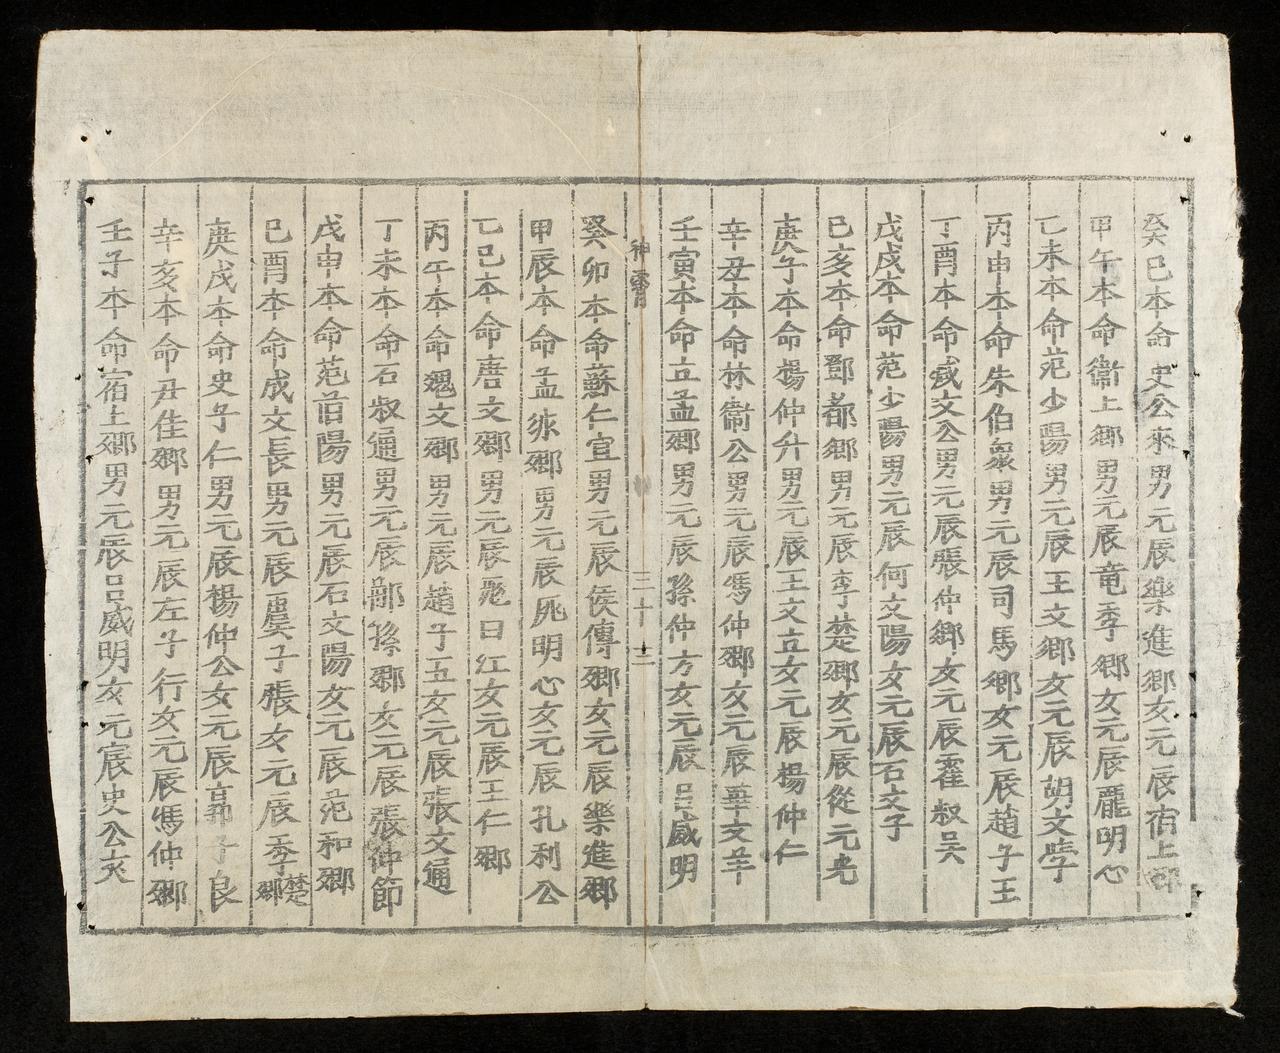 癸巳本命史公來男元辰樂進鄉女元辰宿上鄉
甲午本命衞上鄉男元辰竜季鄉女元辰龐明心
乙未本命范少陽男元辰王文鄉女元辰胡文孛
丙申本命朱伯衆男元辰司馬鄉女元辰趙子王
丁酉本命臧文公男元辰張仲鄉女元辰霍叔吴
戊戌本命范少陽男元辰何文陽女元辰石文子
巳亥本命鄧都鄉男元辰李楚鄉女元辰從元光
庚子本命楊仲升男元辰王文立女元辰楊仲仁
辛丑本命林衞公男元辰馮仲鄉女元辰華文羊
壬寅本命立孟鄉男元辰孫仲方女元辰吕威明
神霄 三十三
癸卯本命蘇仁宣男元辰侯傳鄉女元辰樂進鄉
甲辰本命孟 鄉男元辰 明心女元辰孔利公
乙巳本命唐文鄉男元辰 日江女元辰王仁鄉
丙午本命魏文鄉男元辰趙子五女元辰張文通
丁未本命石叔通男元辰 孫鄉女元辰張仲節
戊申本命范首陽男元辰石文陽女元辰范和鄉
巳酉本命成文長男元辰虞子張女元辰季楚鄉
庚戌本命史子仁男元辰楊仲公女元辰郭子良
辛亥本命丑佳鄉男元辰左子行女元辰馮仲鄉
壬子本命宿上鄉男元辰吕威明女元宸史公夾